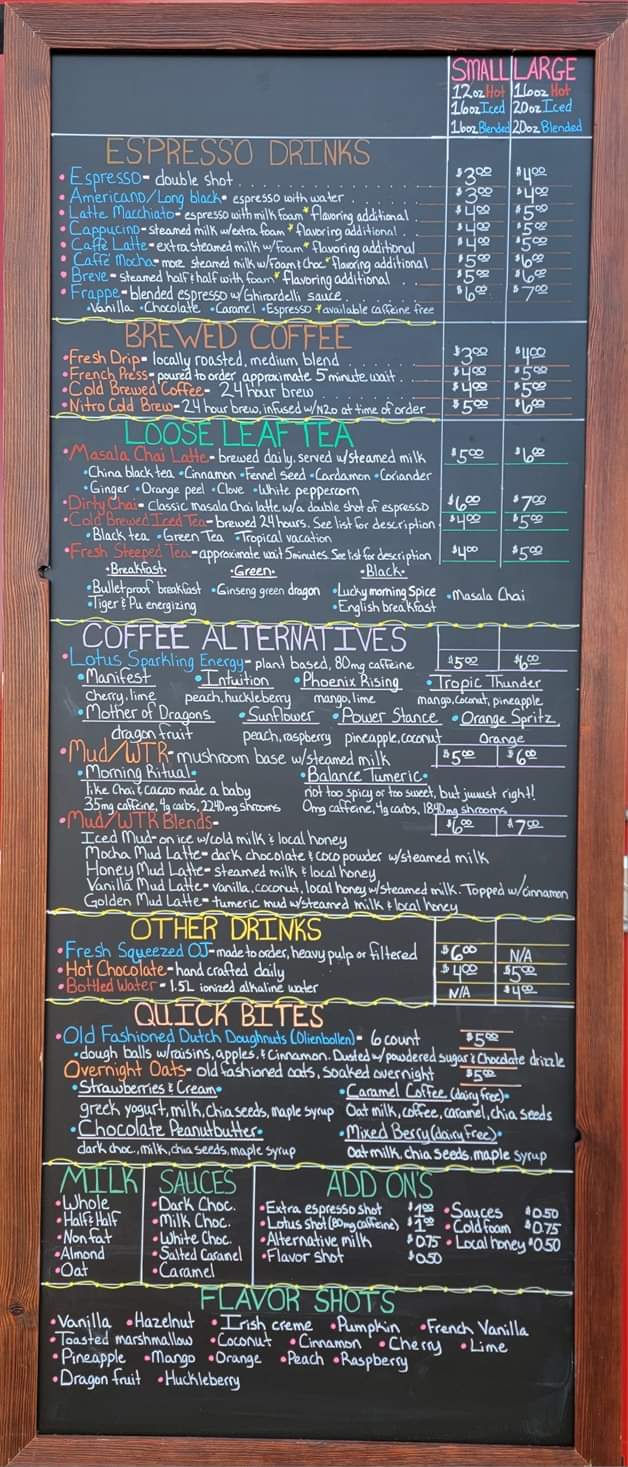 SMALL LARGE
12oz Hot 16oz Hot
16oz Iced 20oz Iced
16oz Blended 20oz Blended
ESPRESSO DRINKS
• Espresso - double shot $3.00 $4.00
• Americano/Long black - espresso with water $3.00 $4.00
• Latte Macchiato - espresso with milk foam * flavoring additional $4.00 $5.00
• Cappucino - steamed milk w/extra foam * flavoring additional $4.00 $5.00
• Caffé Latte - extra steamed milk w/foam * flavoring additional $4.00 $5.00
• Caffé Mocha - more steamed milk w/Foam & Choc * flavoring additional $5.00 $6.00
• Breve - steamed half & half with foam * flavoring additional $5.00 $6.00
• Frappe - blended espresso w/Ghirardelli sauce $6.00 $7.00
• Vanilla • Chocolate • Caramel • Espresso * available caffeine free
BREWED COFFEE
• Fresh Drip - locally roasted, medium blend $3.00 $4.00
• French Press - poured to order, approximate 5 minute wait $4.00 $5.00
• Cold Brewed Coffee - 24 hour brew $4.00 $5.00
• Nitro Cold Brew - 24 hour brew, infused w/N2o at time of order $5.00 $6.00
LOOSE LEAF TEA
• Masala Chai Latte - brewed daily, served w/steamed milk $5.00 $6.00
• China black tea • Cinnamon • Fennel Seed • Cardamon • Coriander
• Ginger • Orange peel • Clove • White peppercorn
• Dirty Chai - classic masala Chai latte w/a double shot of espresso $6.00 $7.00
• Cold Brewed Iced Tea - brewed 24 hours. See list for description $4.00 $5.00
• Black tea • Green Tea • Tropical vacation
• Fresh Steeped Tea - approximate wait 5 minutes. See list for description $4.00 $5.00
• Breakfast • • Green • • Black •
• Bulletproof breakfast • Ginseng green dragon • Lucky morning Spice • Masala Chai
• Tiger & Pu energizing • English breakfast
COFFEE ALTERNATIVES
• Lotus Sparkling Energy - plant based, 80mg caffeine $5.00 $6.00
• Manifest • Intuition • Phoenix Rising • Tropic Thunder
cherry, lime peach, huckleberry mango, lime mango, coconut, pineapple
• Mother of Dragons • Sunflower • Power Stance • Orange Spritz
dragon fruit peach, raspberry pineapple, coconut Orange
• Mud/WTR - mushroom base w/steamed milk $5.00 $6.00
• Morning Ritual • • Balance Tumeric •
like Chai & Cacao made a baby not too spicy or too sweet, but juuust right!
35mg caffeine, 4g carbs, 2240mg shrooms 0mg caffeine, 4g carbs, 1840mg shrooms
• Mud/WTR Blends - $6.00 $7.00
Iced Mud - on ice w/cold milk & local honey
Mocha Mud Latte - dark chocolate & coco powder w/steamed milk
Honey Mud Latte - steamed milk & local honey
Vanilla Mud Latte - vanilla, coconut, local honey w/steamed milk. Topped w/cinnamon
Golden Mud Latte - tumeric mud w/steamed milk & local honey
OTHER DRINKS
• Fresh Squeezed OJ - made to order, heavy pulp or filtered $6.00 N/A
• Hot Chocolate - hand crafted daily $4.00 $5.00
• Bottled Water - 1.5L ionized alkaline water N/A $4.00
QUICK BITES
• Old Fashioned Dutch Doughnuts (Olienbollen) - 6 count $5.00
• dough balls w/raisins, apples, & Cinnamon. Dusted w/powdered sugar & Chocolate drizzle
Overnight Oats - old fashioned oats, soaked overnight $5.00
• Strawberries & Cream • • Caramel Coffee (dairy free) •
greek yogurt, milk, chia seeds, maple syrup Oat milk, coffee, caramel, chia seeds
• Chocolate Peanutbutter • • Mixed Berry (dairy free) •
dark choc., milk, chia seeds, maple syrup Oat milk, chia seeds, maple syrup
MILK
• Whole
• Half & Half
• Non fat
• Almond
• Oat
SAUCES
• Dark Choc.
• Milk Choc.
• White Choc.
• Salted Caramel
• Caramel
ADD ON'S
• Extra espresso shot $1.00
• Lotus shot (80mg caffeine) $1.00
• Alternative milk $0.75
• Flavor shot $0.50
• Sauces $0.50
• Cold foam $0.75
• Local honey $0.50
FLAVOR SHOTS
• Vanilla • Hazelnut • Irish creme • Pumpkin • French Vanilla
• Toasted marshmallow • Coconut • Cinnamon • Cherry • Lime
• Pineapple • Mango • Orange • Peach • Raspberry
• Dragon fruit • Huckleberry